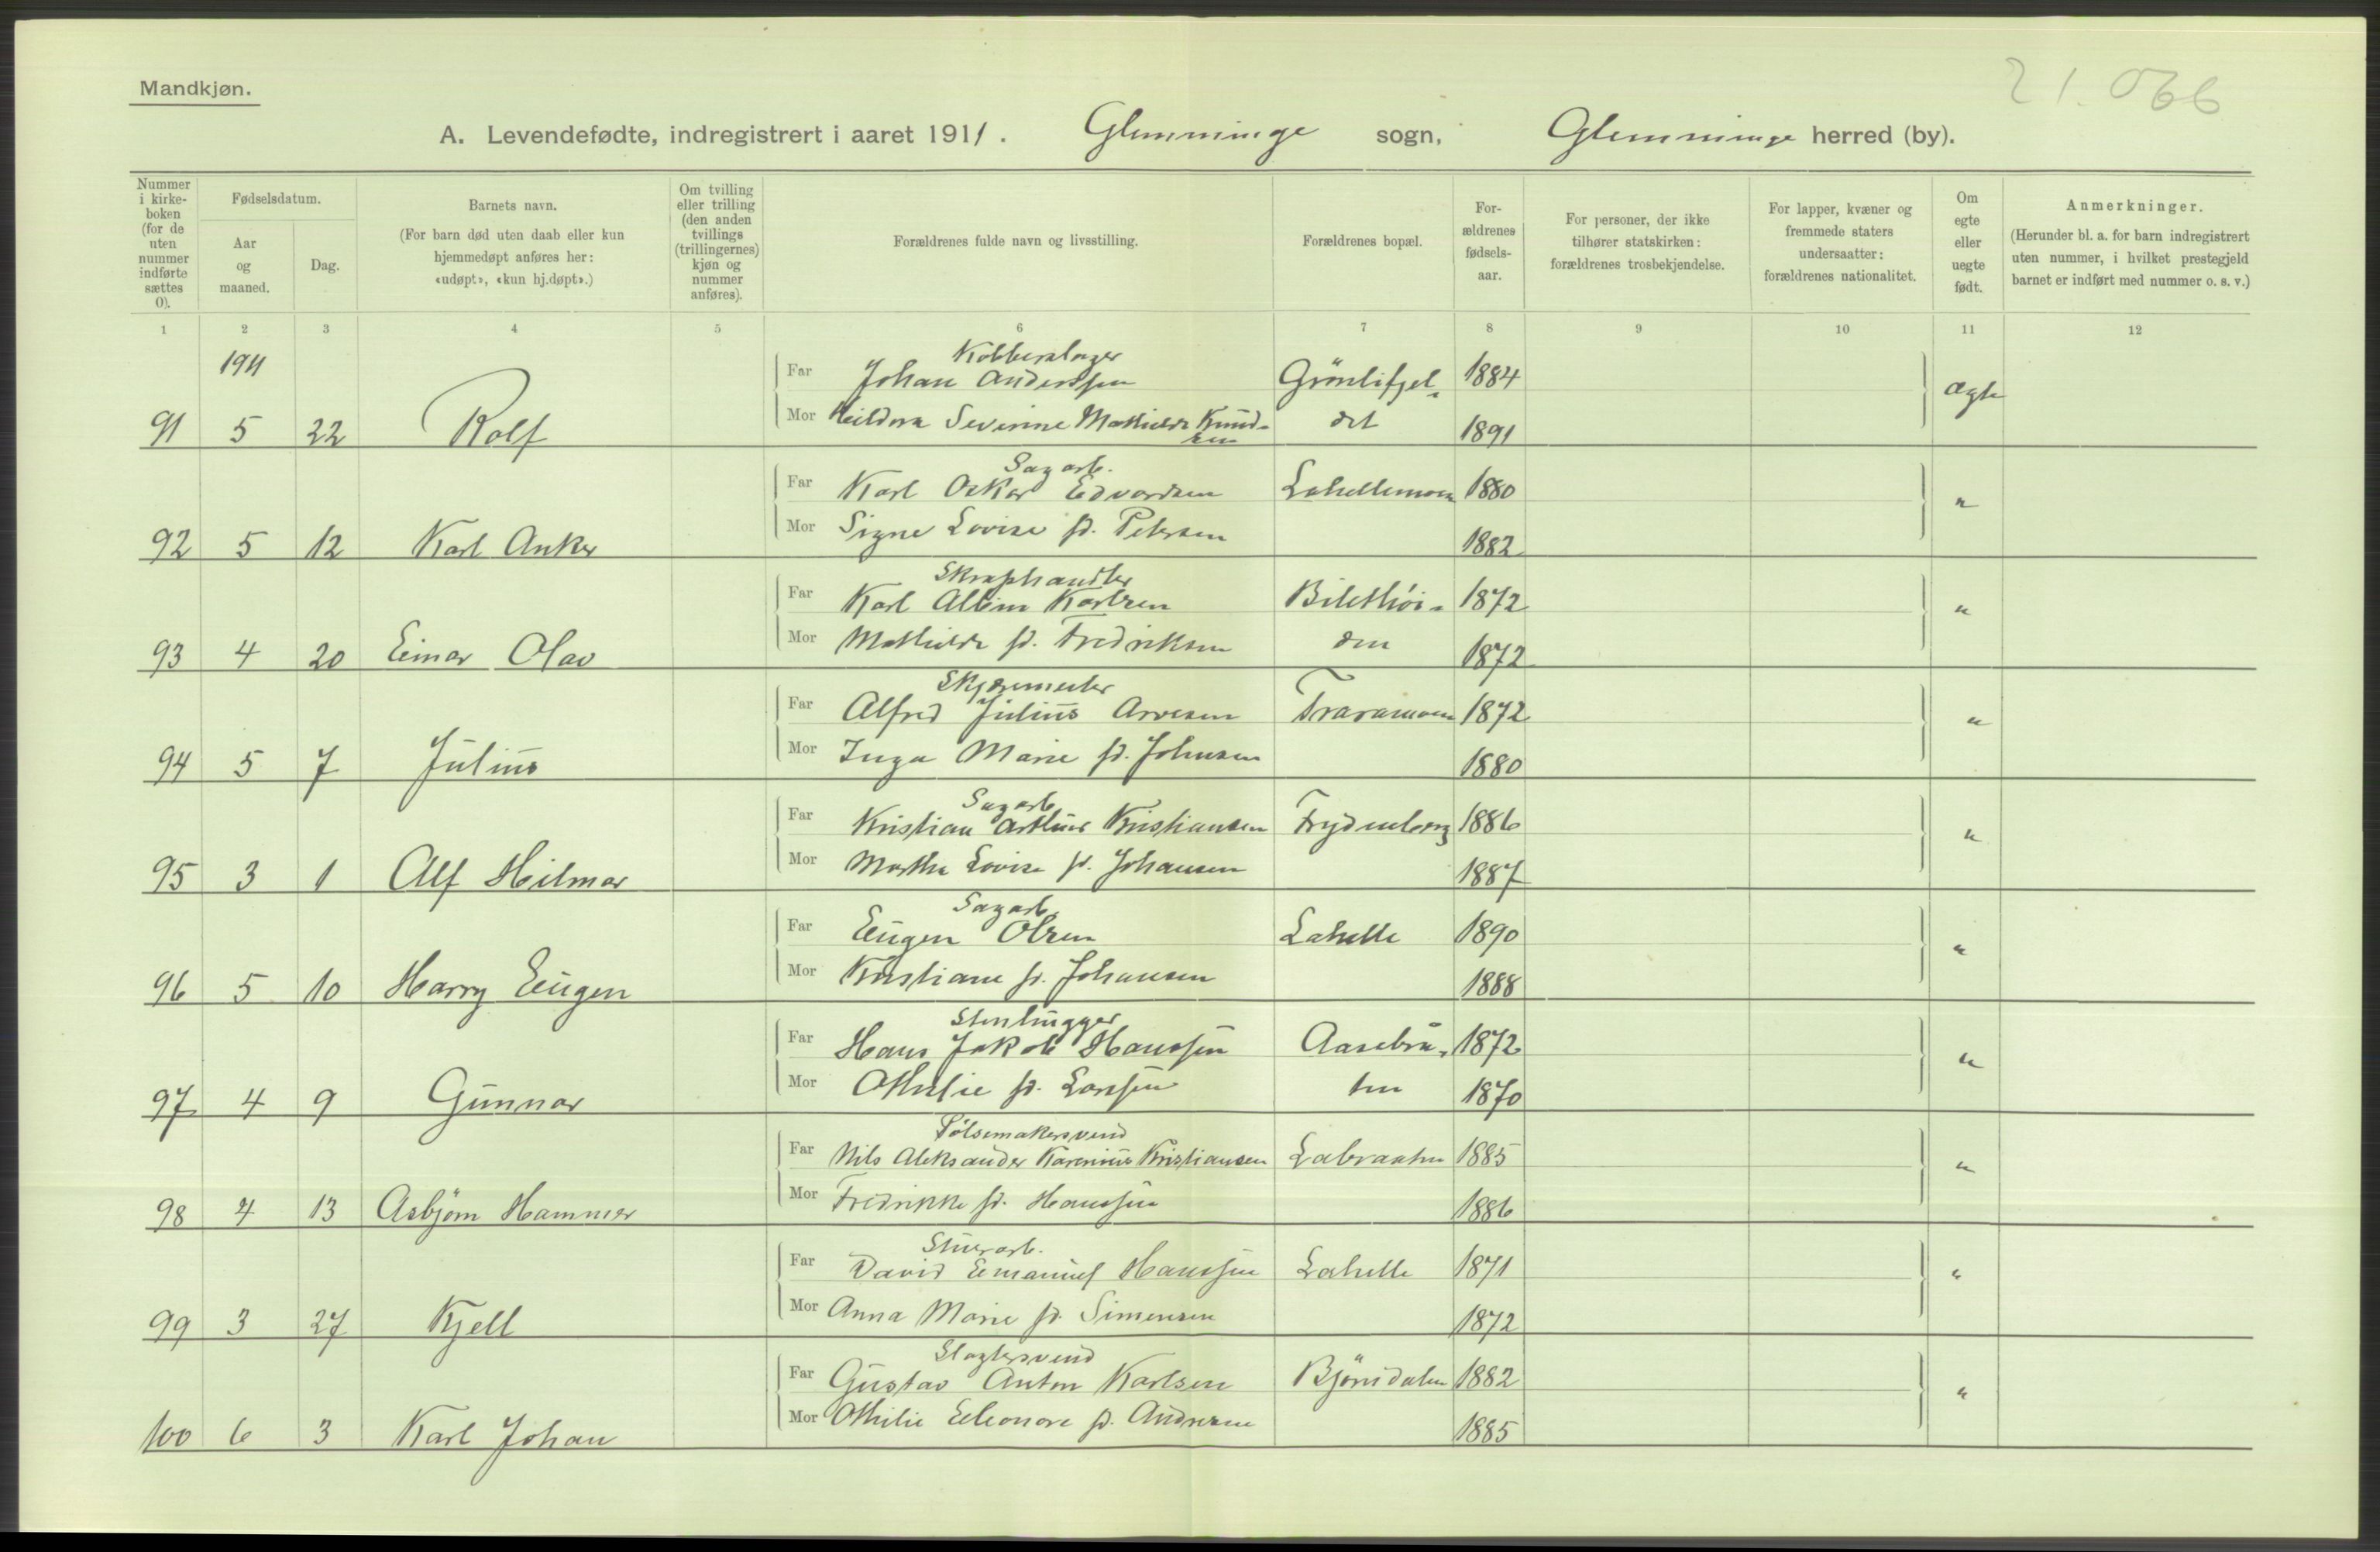 Mandkjøn.
21.066
A. Levendefødte, indregistrert i aaret 1911. Glemminge sogn, Glemminge herred (by).
Nummer i kirke-boken (for de uten nummer indførte sættes 0).
Fødselsdatum.
Aar og maaned.
Dag.
Barnets navn.
(For barn død uten daab eller kun hjemmedøpt anføres her: «udøpt», «kun hj.døpt».)
Om tvilling eller trilling (den anden tvillings (trillingernes) kjøn og nummer anføres).
Forældrenes fulde navn og livsstilling.
Forældrenes bopæl.
For-ældrenes fødsels-aar.
For personer, der ikke tilhører statskirken: forældrenes trosbekjendelse.
For lapper, kvæner og fremmede staters undersaatter: forældrenes nationalitet.
Om egte eller uegte født.
Anmerkninger.
(Herunder bl. a. for barn indregistrert uten nummer, i hvilket prestegjeld barnet er indført med nummer o. s. v.)
1 2 3 4 5 6 7 8 9 10 11 12
1911
Kobberslager
Far Johan Anderssen Grönlifjel- 1884 ægte
91 5 22 Rolf Mor Severine Mathilde Knud-sen det 1891
Sagarb.
Far Karl Oskar Edvardsen Lahellemoen 1880 "
92 5 12 Karl Anker Mor Signe Lovise f. Petersen 1882
Skraphandler
Far Karl Albin Karlsen 1872 "
93 4 20 Einar Olav Mor Mathilde f. Fredriksen den 1872
Skjæremester
Far Alfred Julius Arvesen Traramoen 1872 "
94 5 7 Julius Mor Inga Marie f. Johnsen 1880
Sagarb.
Far Kristian Arthur Kristiansen Frydenberg 1886 "
95 3 1 Alf Hilmar Mor Martha Lovise f. Johansen 1887
Sagarb.
Far Eugen Olsen Lahelle 1890 "
96 5 10 Harry Eugen Mor Kristiane f. Johansen 1888
Stenhugger
Far Hans Jakob Hanssen Aasebrå- 1872 "
97 4 9 Gunnar Mor Othilie f. Larssen ten 1870
Pölsemakersvend
Far Nils Aleksander Karenius Kristiansen Labraaten 1885 "
98 4 13 Asbjörn Hammer Mor Fredrikke f. Hanssen 1886
Stuerarb.
Far David Emanuel Hanssen Lahelle 1871 "
99 3 27 Kjell Mor Anna Marie f. Simensen 1872
Slagtersvend
Far Gustav Anton Karlsen Björnsdalen 1882 "
100 6 3 Karl Johan Mor Othilie Eleonore f. Andresen 1885